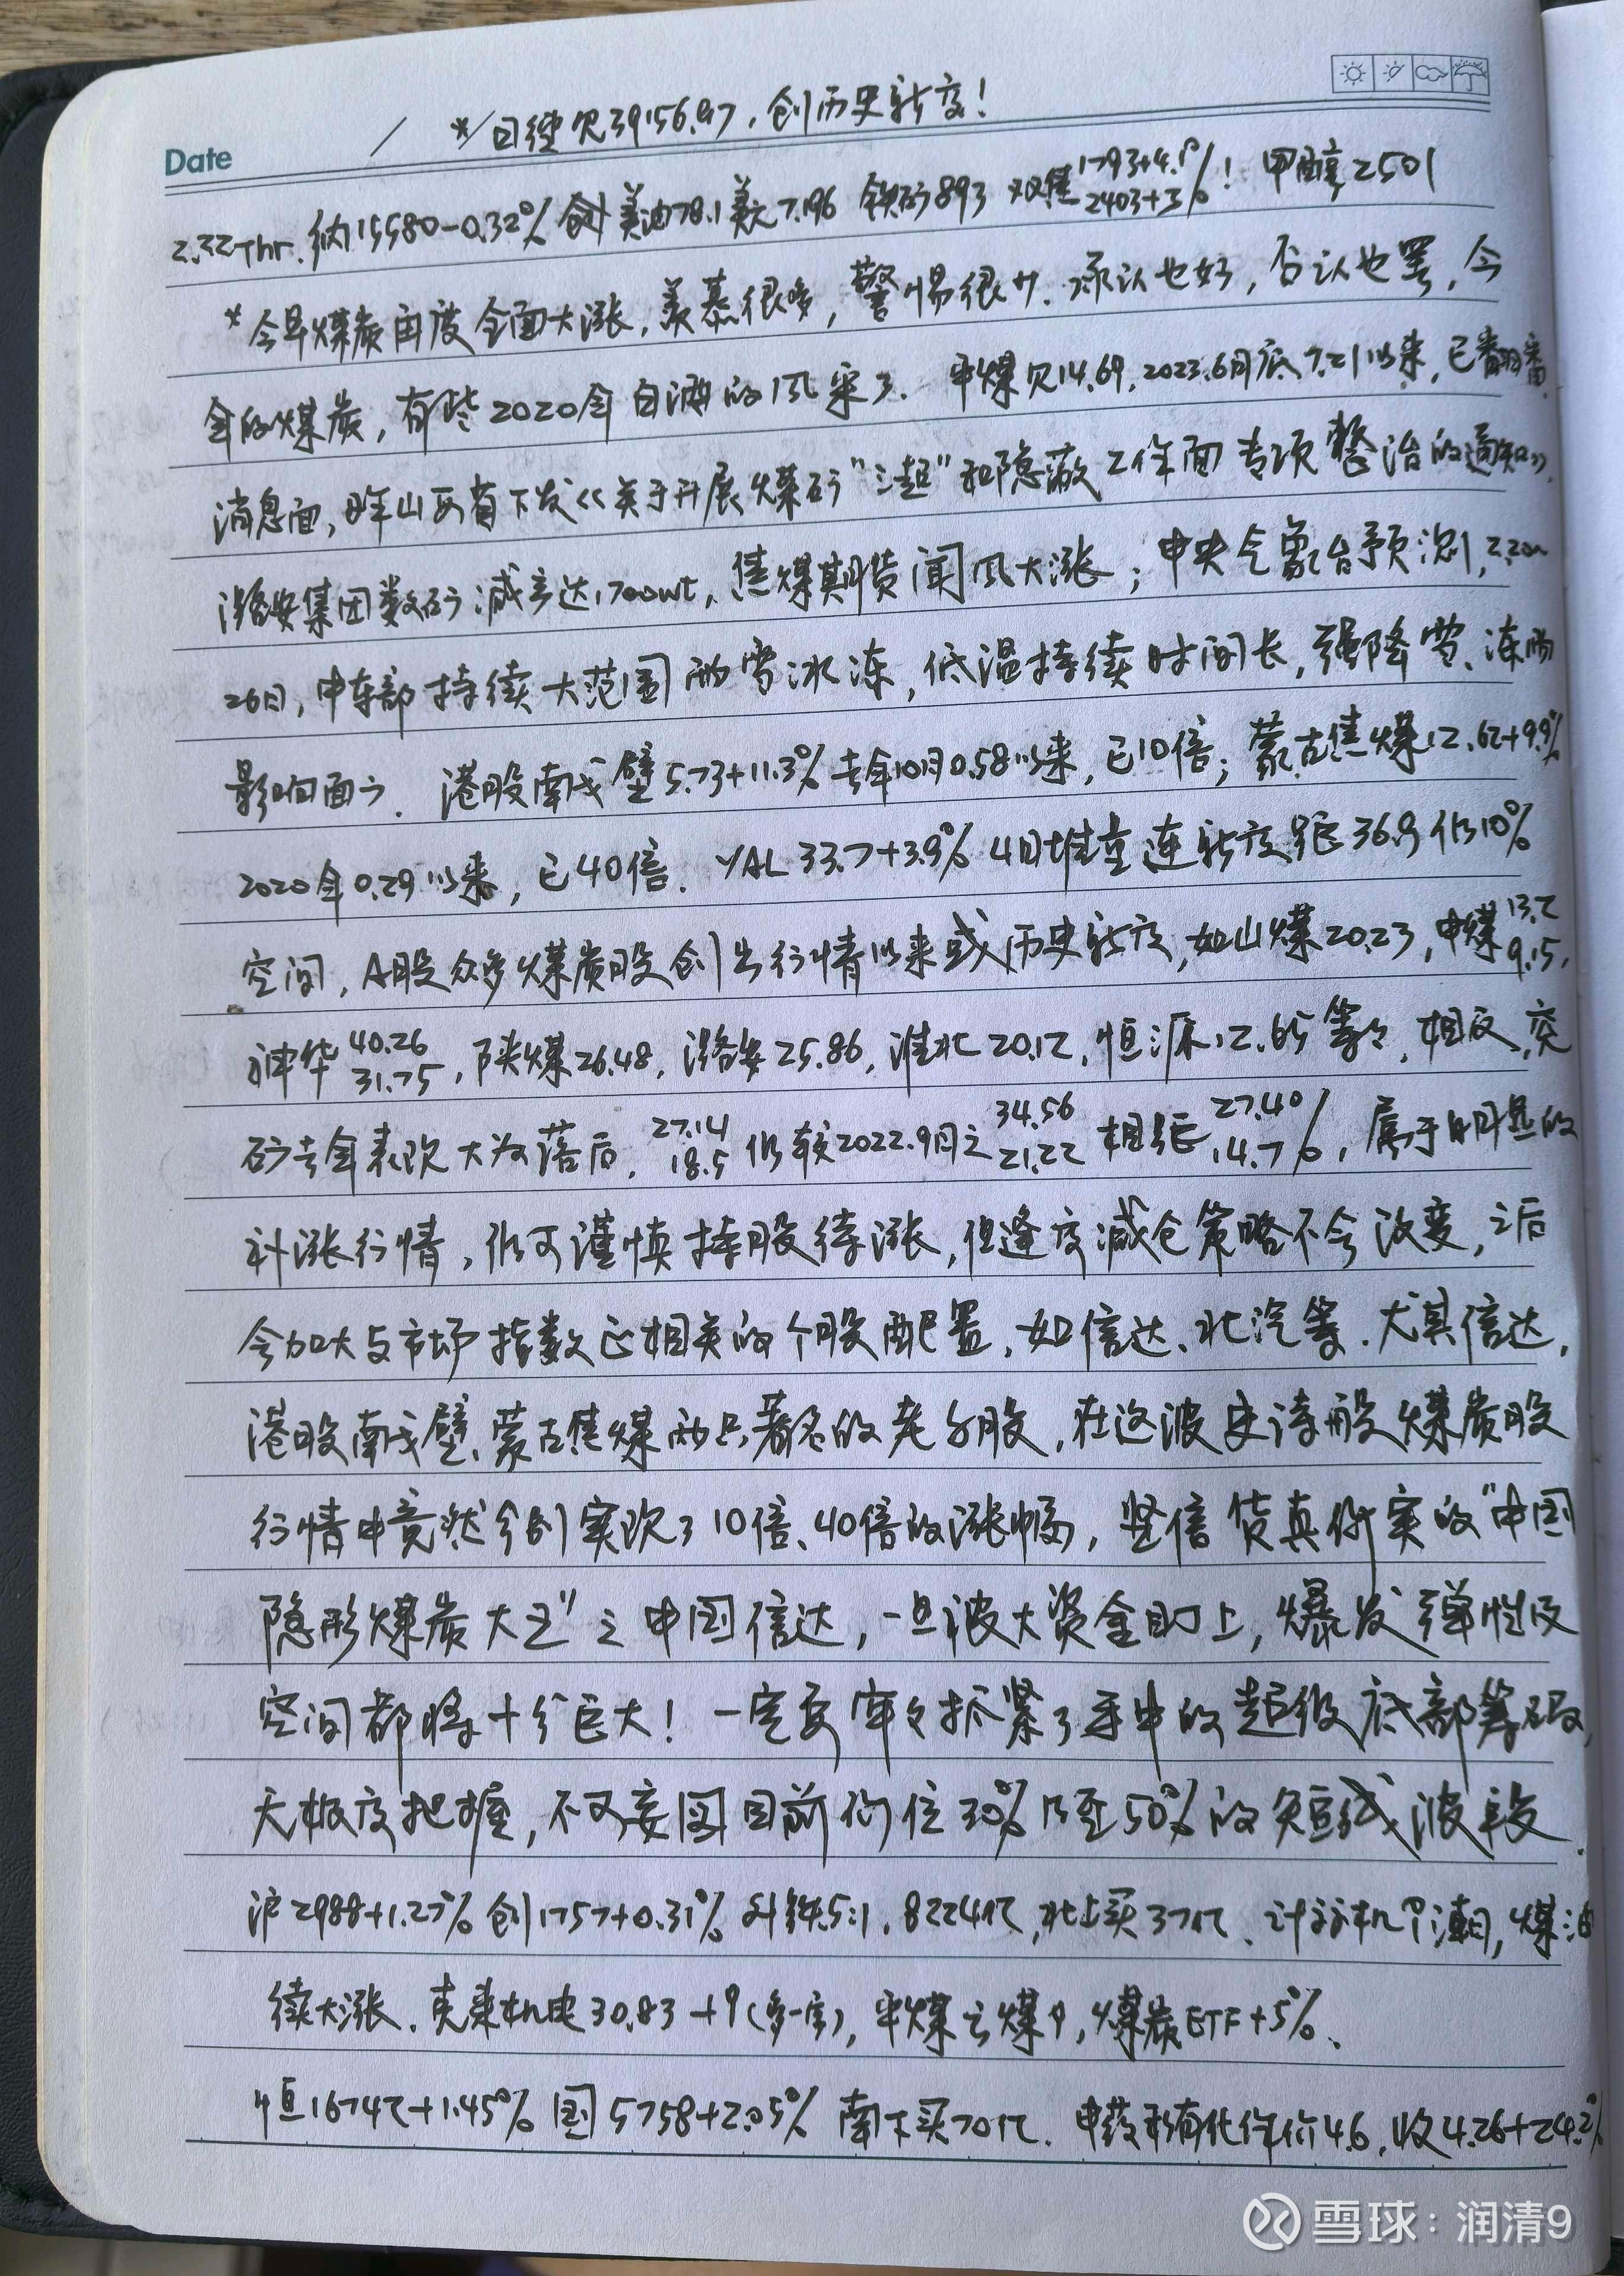 * 日经见39156.97，创历史新高！
Date
2.22 Thr. 纳15580-0.32% 美油78.1 美元7.196 铁矿893 双焦1793+4.1% 2403+3%！ 甲醇2501
* 今早煤炭再度全面大涨，羡慕很多，警惕很少．承认也好，否认也罢，今
年的煤炭，有些2020年白酒的风采了． 平煤见14.69，2023.6月底7.21以来，已翻番．
消息面，昨山西省下发《关于开展煤矿“三超”和隐蔽工作面专项整治的通知》，
潞安集团数矿减产达1700wt，焦煤期货闻风大涨；中央气象台预测，2.20~
26日，中东部持续大范围雨雪冰冻，低温持续时间长，强降雪、冻雨
影响面广． 港股南戈壁5.73+11.3%去年10月0.58以来，已10倍；蒙古焦煤12.62+9.9%
2020年0.29以来，已40倍．YAL 33.7+3.9% 4日堆量连新高距36.9仍10%
空间，A股众多煤炭股创出行情以来或历史新高，如山煤20.23，中煤13.2 9.15，
神华40.26 31.75，陕煤26.48，潞安25.86，淮北20.12，恒源12.65等等，相反，兖
矿去年表现大为落后，27.14 18.5 仍较2022.9月之34.56 21.22 相距27.4% 14.7%，属于明显的
补涨行情，仍可谨慎持股待涨，但逢高减仓策略不会改变，之后
会加大与市场指数正相关的个股配置，如信达、北汽等．尤其信达，
港股南戈壁、蒙古焦煤两只著名的老千股，在这波史诗般煤炭股
行情中竟然分别实现了10倍、40倍的涨幅，坚信货真价实的“中国
隐形煤炭大王”之中国信达，一旦被大资金盯上，爆发弹性及
空间都将十分巨大！一定要牢牢抓紧了手中的超级底部筹码，
无极度把握，不可妄图目前价位30%乃至50%的短线波段．
沪2988+1.27% 创1757+0.31% 升跌5:1，8224亿，北上买37亿、计算机中涨8，煤油
续大涨．克来机电30.83+9(多一字)，平煤云煤中，煤炭ETF+5%．
恒16742+1.45% 国5758+2.05% 南下买70亿．中药私有化作价4.6，收4.26+24.2%
雪球：润清9